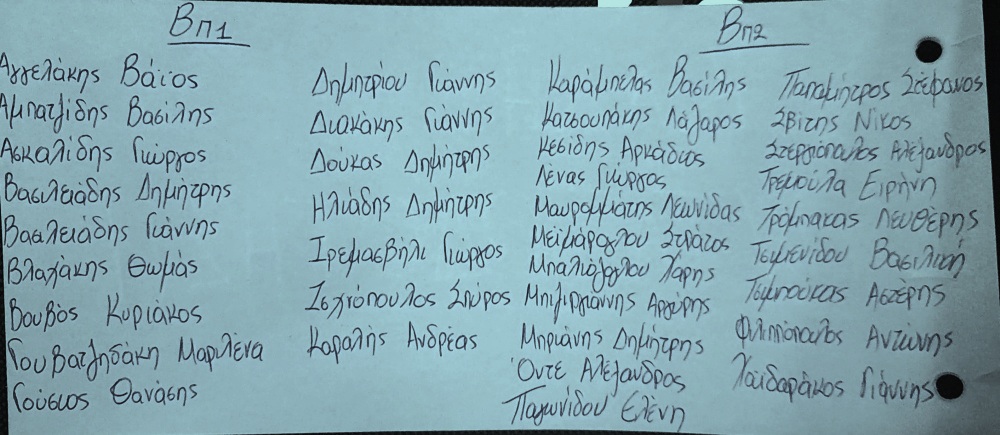 Βπ1
Αγγελάκης Βάϊος
Αμπατζίδης Βασίλης
Ασκαλίδης Γιώργος
Βασιλειάδης Δημήτρης
Βασιλειάδης Γιάννης
Βλαχάκης Θωμάς
Βουβός Κυριάκος
Γουβατζηδάκη Μαριλένα
Γούσιος Θανάσης
Δημητρίου Γιάννης
Διακάκης Γιάννης
Δούκας Δημήτρης
Ηλιάδης Δημήτρης
Ιρεμασβήλι Γιώργος
Ισχιόπουλος Σπύρος
Καραλής Ανδρέας
Βπ2
Καράμπελας Βασίλης
Κατσουπάκης Λάζαρος
Κεσίδης Αρκάδιος
Λένας Γιώργος
Μαυρομμάτης Λεωνίδας
Μεϊμάρογλου Στράτος
Μπαλιόγλου Χάρης
Μπιζιργιάννης Αργύρης
Μπριάνης Δημήτρης
Όντε Αλέξανδρος
Παγωνίδου Ελένη
Παπαμήτρος Στέφανος
Σβίτης Νίκος
Στεργιόπουλος Αλέξανδρος
Τρεμούλα Ειρήνη
Τρόμπακας Λευθέρης
Τσιμενίδου Βασιλική
Τσιμπούκας Αστέρης
Φιλιππόπουλος Αντώνης
Χαϊδαράκος Γιάννης